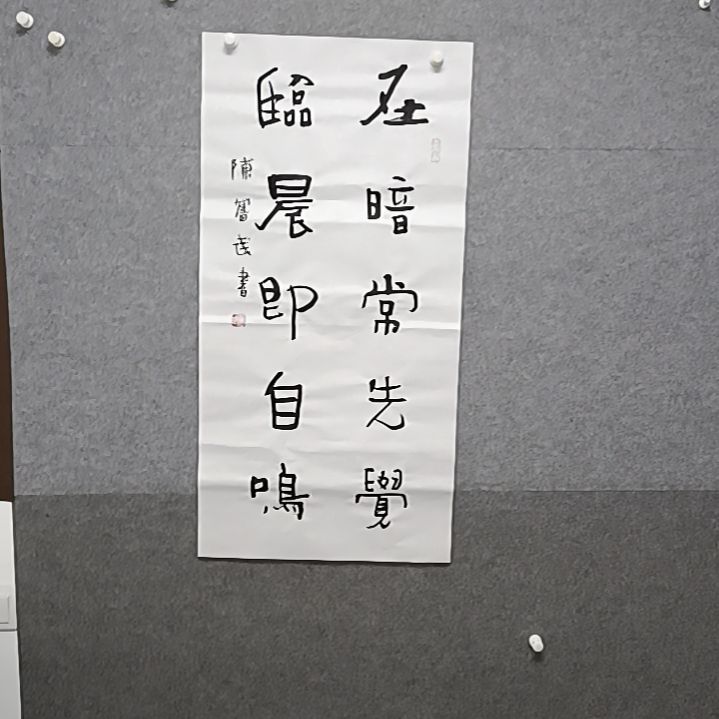 在暗常先覺
臨晨即自鳴
陳智武書